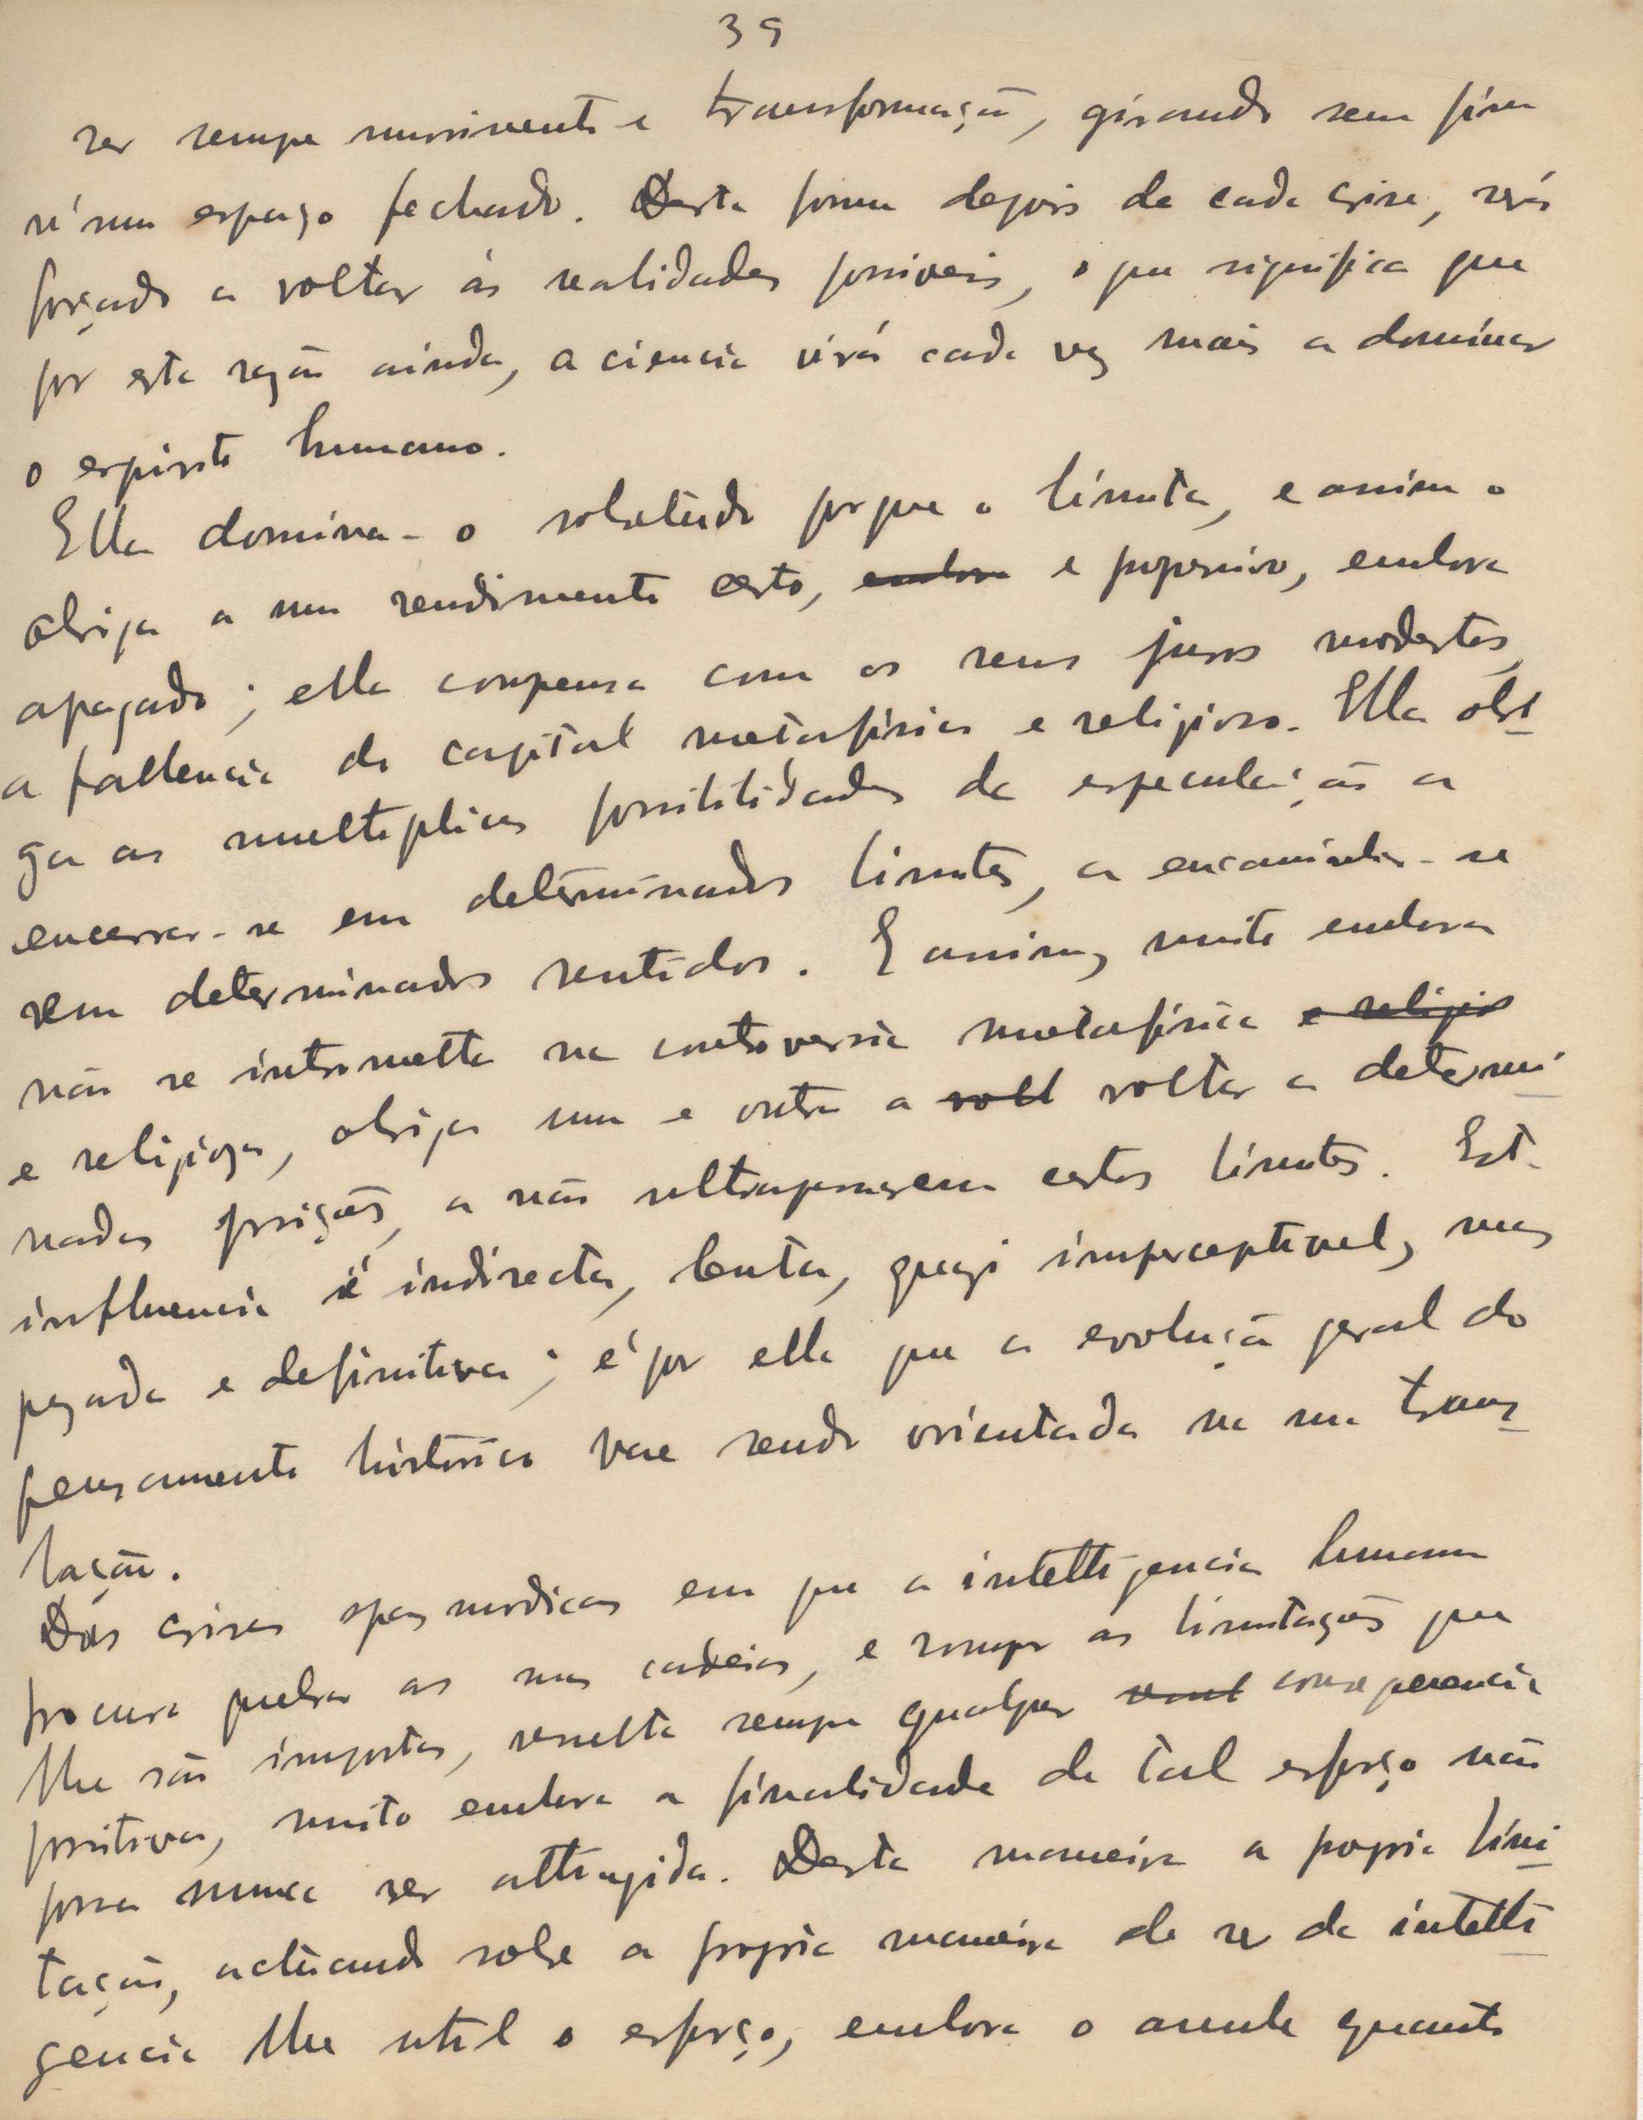 39
ser sempre movimento e transformação, girando sem fim
n'um espaço fechado. Desta forma depois de cada crise, será
forçado a voltar ás realidades possiveis, o que significa que
por esta razão ainda, a ciencia virá cada vez mais a dominar
o espirito humano.
Ella domina-o sobretudo porque o limita, e assim o
obriga a um rendimento certo, embora e progressivo, embora
apagado; ella compensa com os seus juros modestos,
a fallencia do capital metafisico e religioso. Ella obri
ga as multiplices possibilidades de especulação a
encerrar-se em determinados limites, a encaminhar-se
em determinados sentidos. E assim, muito embora
não se intrometta na controversia metafisica e religio
e religiosa, obriga uma e outra a volt voltar a determi
nadas posições, a não ultrapassarem certos limites. Est.
influencia é indirecta, lenta, quazi imperceptivel, mas
pezada e definitiva; é por ella que a evolução geral do
pensamento historico vae sendo orientada na sua trans
lação.
Das crises spasmodicas em que a intelligencia humana
procura quebrar as suas cadeias, e romper as limitações que
lhe são impostas, resulta sempre qualquer consequencia
positiva, muito embora a finalidade de tal esforço não
possa nunca ser attingida. Desta maneira a propria limi
tação, actuando sobre a propria maneira de ser da intelli
gencia lhe util o esforço, embora o annule quanto